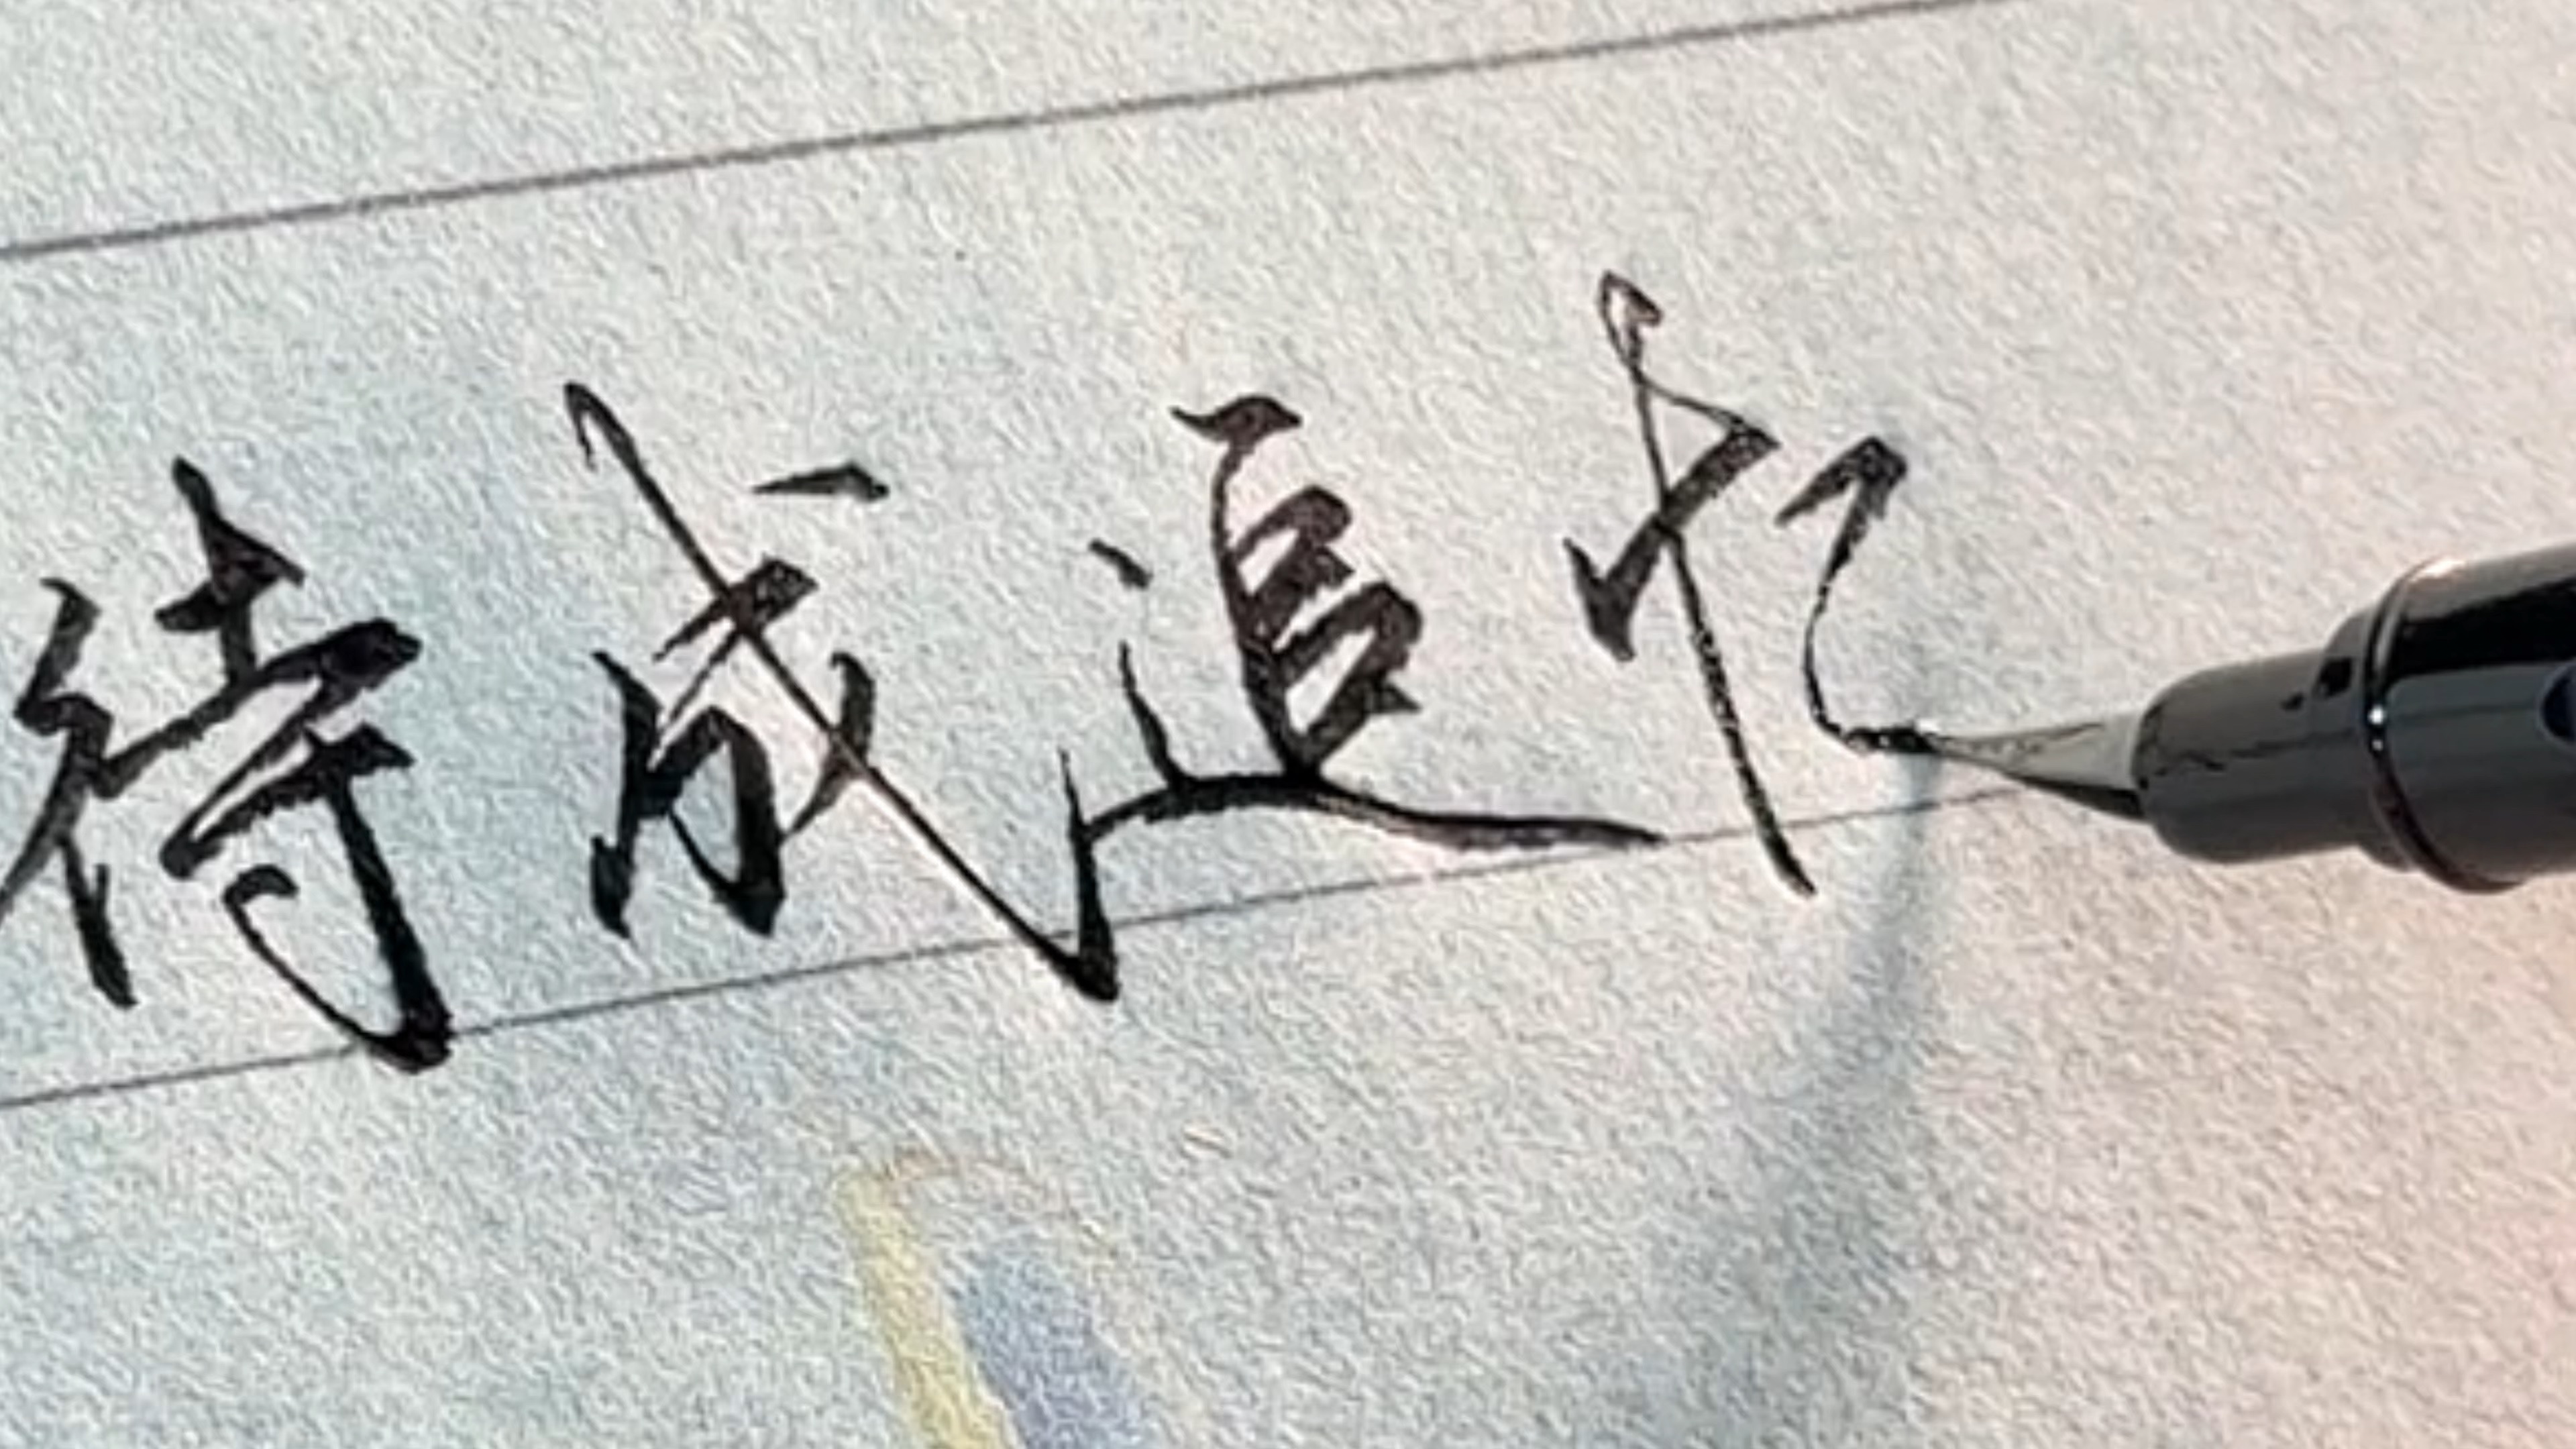 待成追忆